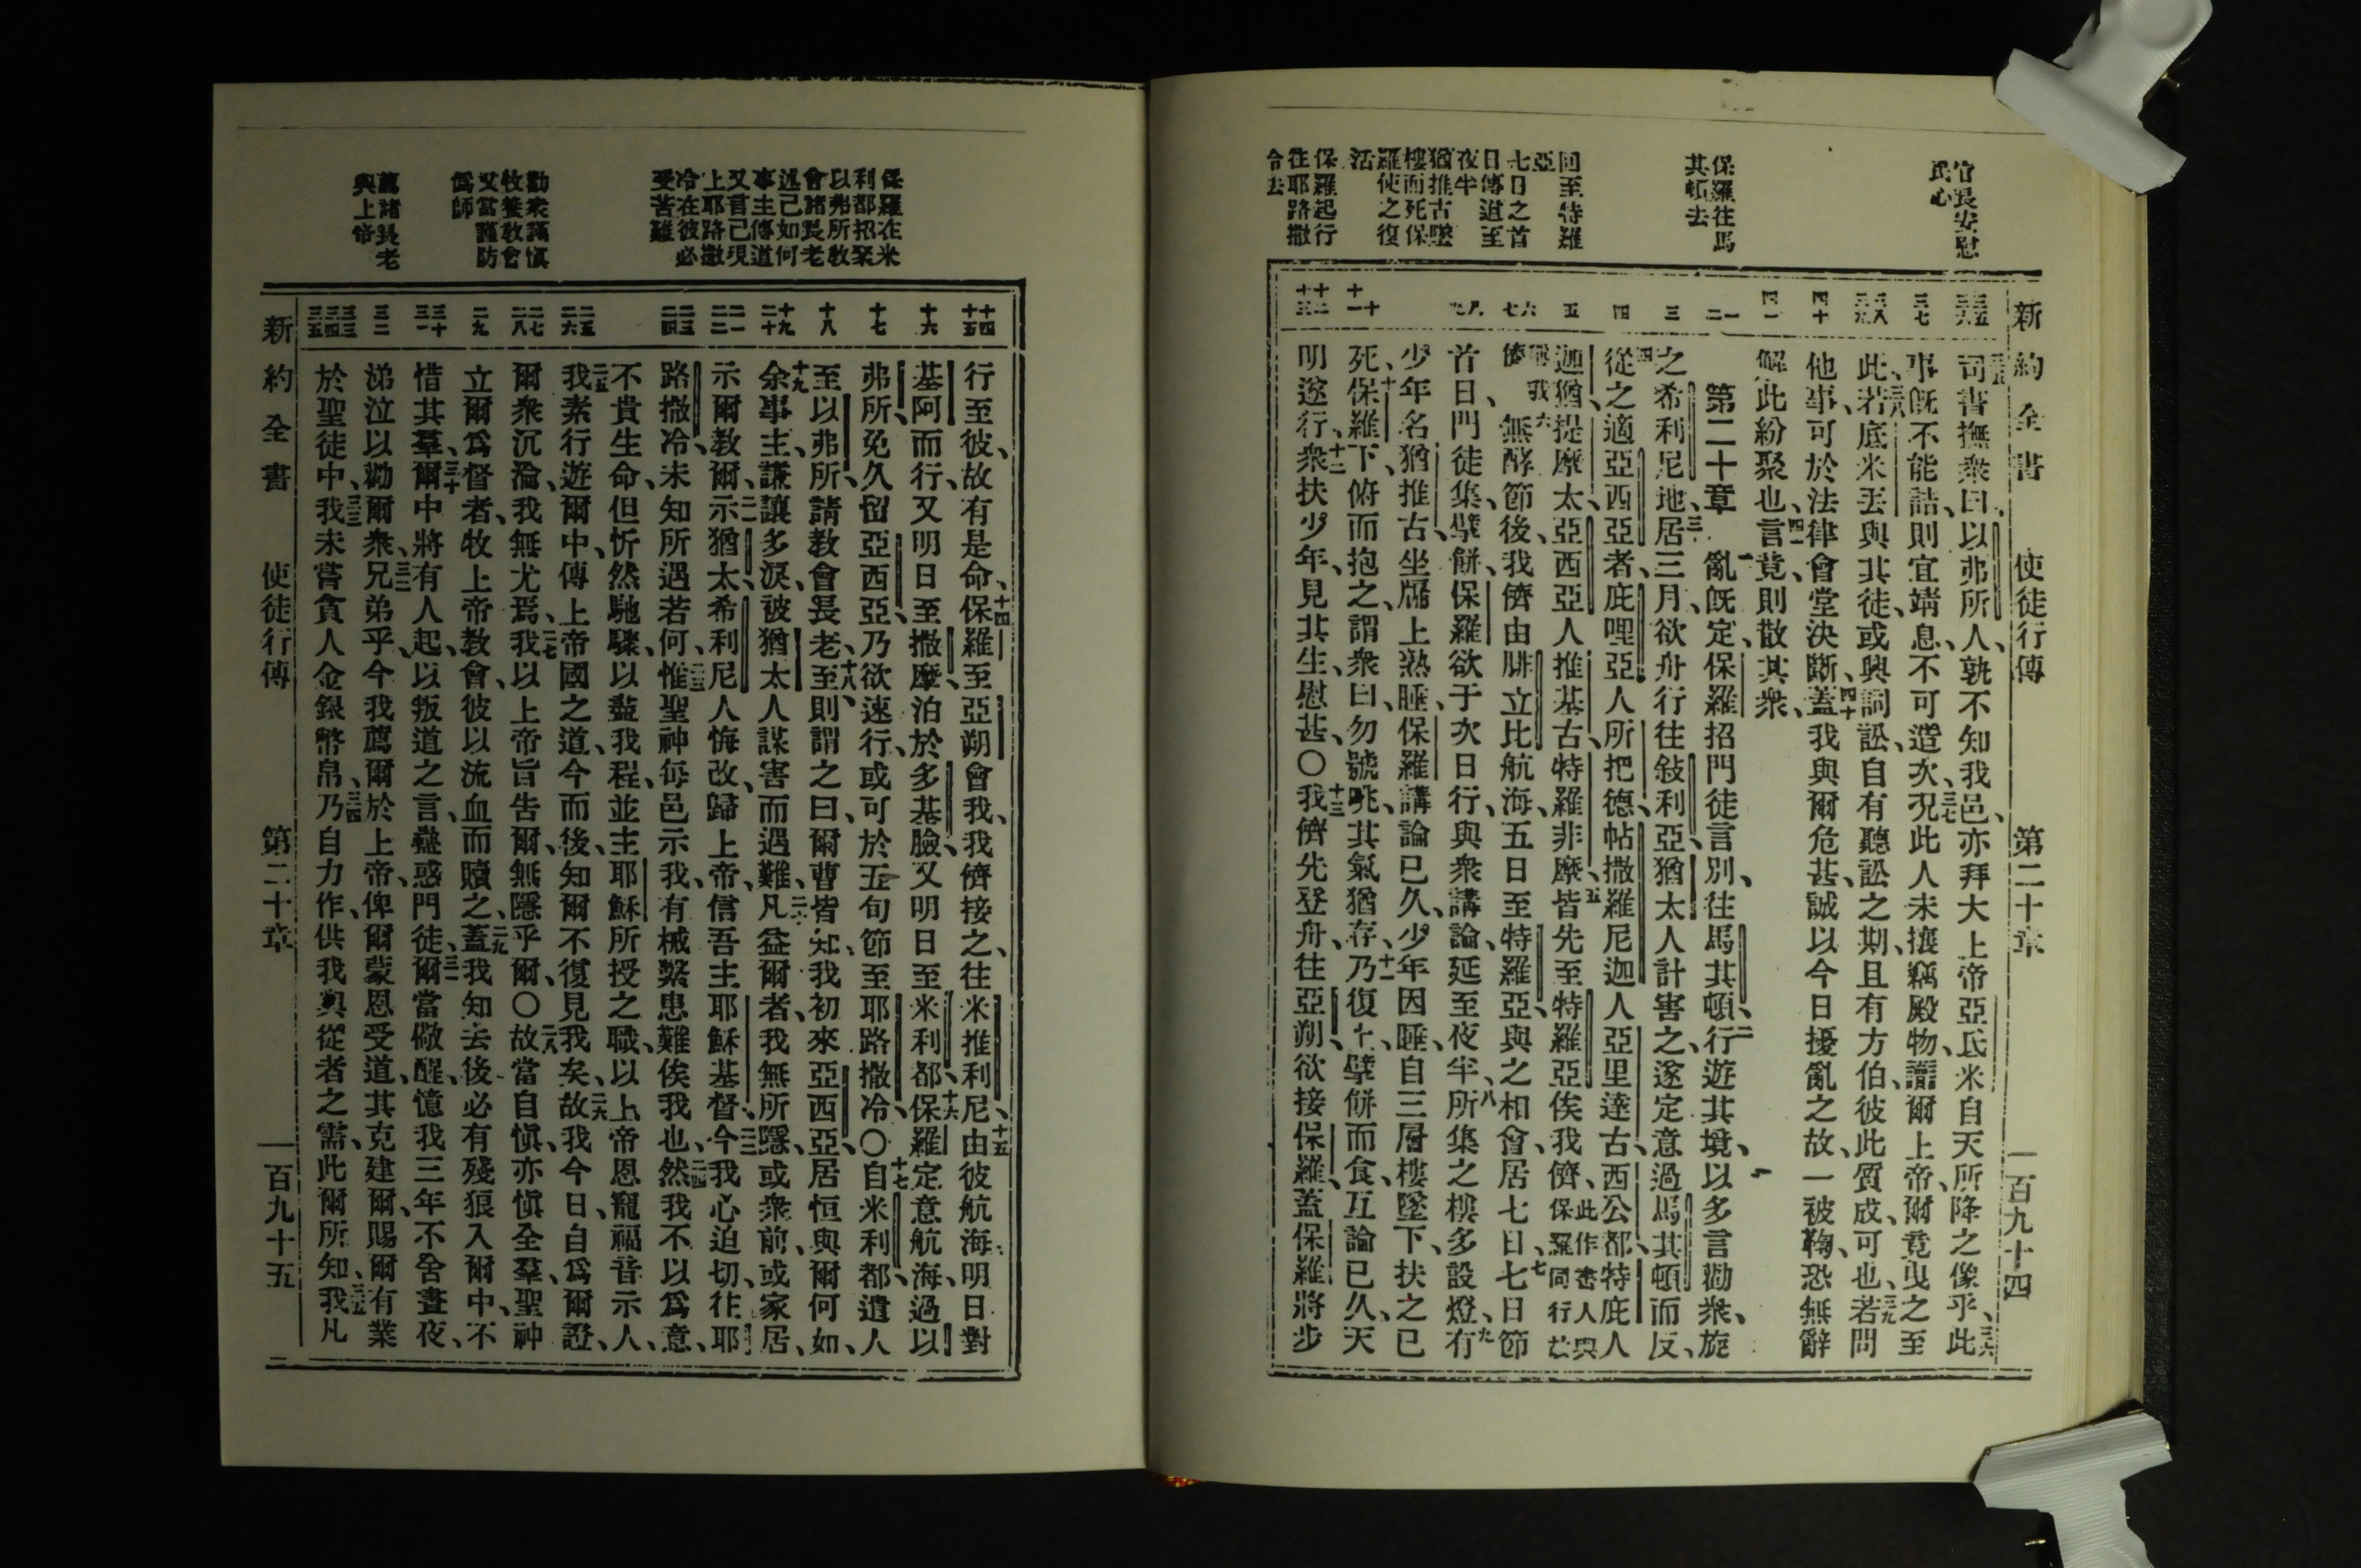 新約全書 使徒行傳 第二十章 一百九十四
官長安慰
民心
保羅往馬
其頓去
回至特羅
亞
七日之首
日傳道至
夜半
猶推古墜
樓而死保
羅使之復
活
保羅起行
往耶路撒
冷去
三五 三六
三七
三八 三九
四十
四一
一 二
三
四
五
六 七
八 九
十 十一
十二 十三
三五司書撫衆曰、以弗所人、孰不知我邑、亦拜大上帝亞氏米自天所降之像乎、三六此
事旣不能詰、則宜靖息、不可造次、三七況此人未攘竊殿物、讟爾上帝、爾竟曳之至
此、三八若底米丟與其徒、或興詞訟、自有聽訟之期、且有方伯、彼此質成、可也、三九若問
他事、可於法律會堂決斷、四十蓋我與爾危甚、誠以今日擾亂之故、一被鞫、恐無辭
解此紛聚也、四一言竟、則散其衆、
第二十章 一亂旣定、保羅招門徒言別、往馬其頓、二行遊其境、以多言勸衆、旋
之希利尼地、三居三月、欲舟行往敍利亞、猶太人計害之、遂定意過馬其頓而反、
四從之適亞西亞者、庇哩亞人所把德、帖撒羅尼迦人亞里達古、西公都、特庇人
迦猶、提摩太、亞西亞人推基古、特羅非摩、五皆先至特羅亞俟我儕、此作書人與保羅同行故
稱我儕 六無酵節後、我儕由腓立比航海、五日至特羅亞、與之相會、居七日、七七日節
首日、門徒集、擘餅、保羅欲于次日行、與衆講論、延至夜半、八所集之樓多設燈、九有
少年名猶推古、坐牖上熟睡、保羅講論已久、少年因睡、自三層樓墜下、扶之已
死、十保羅下、俯而抱之、謂衆曰、勿號咷、其氣猶存、十一乃復上、擘餅而食、互論已久、天
明遂行、十二衆扶少年、見其生、慰甚、〇十三我儕先登舟、往亞朔、欲接保羅、蓋保羅將步
保羅在米
利都招聚
以弗所教
會諸長老
述己如何
事主傳道
又言己現
上耶路撒
冷在彼必
受苦難
勸衆謹慎
牧養教會
又當謹防
僞師
薦諸長老
與上帝
十四 十五
十六
十七
十八
十九 二十
二一 二二
二三 二四
二五 二六
二七 二八
二九
三十 三一
三二
三三 三四 三五
行至彼、故有是命、十四保羅至亞朔會我、我儕接之、往米推利尼、十五由彼航海、明日對
基阿而行、又明日至撒摩、泊於多基臉、又明日至米利都、十六保羅定意航海、過以
弗所、免久留亞西亞、乃欲速行、或可於五旬節至耶路撒冷、〇十七自米利都、遣人
至以弗所、請教會長老、十八至則謂之曰、爾曹皆知、我初來亞西亞、居恒與爾何如、
十九余事主、謙讓多淚、被猶太人謀害而遇難、二十凡益爾者、我無所隱、或衆前、或家居、
示爾教爾、二一示猶太、希利尼人悔改、歸上帝、信吾主耶穌基督、二二今我心迫切、往耶
路撒冷、未知所遇若何、二三惟聖神每邑示我、有械繫患難俟我也、二四然我不以爲意、
不貴生命、但忻然馳驟、以盡我程、並主耶穌所授之職、以上帝恩寵福音示人、
二五我素行遊爾中、傳上帝國之道、今而後、知爾不復見我矣、二六故我今日、自爲爾證、
爾衆沉淪、我無尤焉、二七我以上帝旨告爾、無隱乎爾、〇二八故當自愼、亦愼全羣、聖神
立爾爲督者、牧上帝教會、彼以流血而贖之、二九蓋我知去後必有殘狼入爾中、不
惜其羣、三十爾中將有人起、以叛道之言、蠱惑門徒、三一爾當儆醒、憶我三年不舍晝夜、
涕泣以勸爾衆、三二兄弟乎、今我薦爾於上帝、俾爾蒙恩受道、其克建爾、賜爾有業
於聖徒中、三三我未嘗貪人金銀幣帛、三四乃自力作、供我與從者之需、此爾所知、三五我凡
新約全書 使徒行傳 第二十章 一百九十五